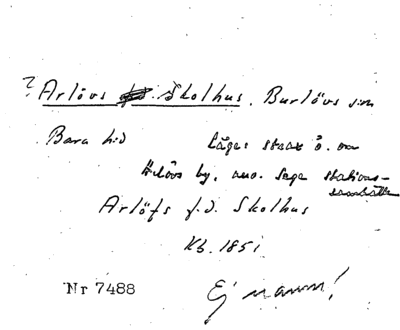 ? Arlövs Skolhus. Burlövs sn
Bara hd Läge: strax ö. om
Arlövs by, stations-
samhälle
Arlöfs f.d. Skolhus
Kb. 1851
Nr 7488 Ej namn!